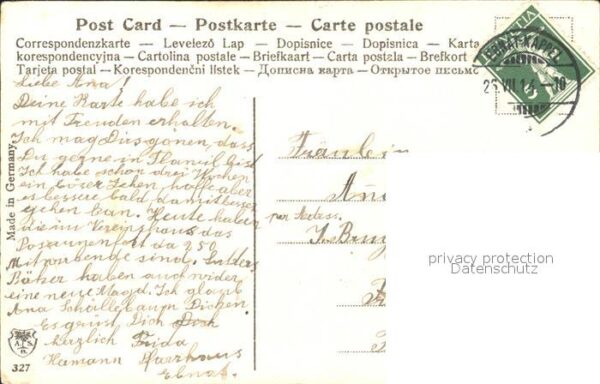 Post Card — Postkarte — Carte postale
Correspondenzkarte — Levelező Lap — Dopisnice — Dopisnica — Karta
korespondencyjna — Cartolina postale — Briefkaart — Carta postala — Brefkort
Tarjeta postal — Korespondenční listek — Дописна карта — Открытое письмо
EBNAT-KAPPEL
25 VII 14 — 10
5
Liebe Ana!
Deine Karte habe ich
mit Freuden erhalten.
Ich mag Dirs gönen, dass
Du gerne in Tlawil bist
Ich habe schon drei Wochen
ein böser Zehen, hoffe aber
es bessere bald damit besser
gehen kan. Heute haben
die im Vereinshaus das
Posaunenfest da 250
Mitwirkende sind.
Bäker haben auch wider
eine neue Magd. Ich glaub
Ana Dichen
Es grüst Dich
herzlich Frida
Hermann Pfarrhaus
Ebnat.
Made in Germany.
327
Fräulein
An
per
J. Brun
privacy protection
Datenschutz